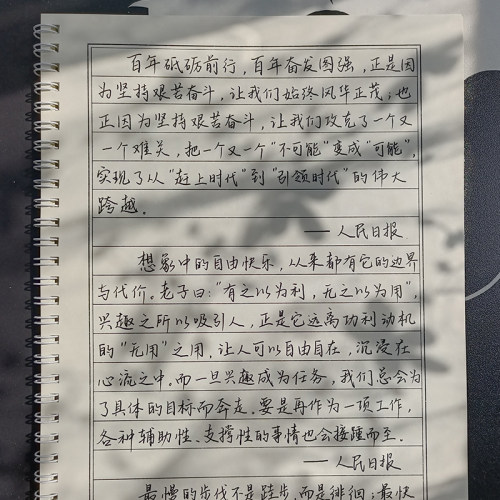 百年砥砺前行，百年奋发图强，正是因
为坚持艰苦奋斗，让我们始终风华正茂，也
正因为坚持艰苦奋斗，让我们攻克了一个又
一个难关，把一个又一个“不可能”变成“可能”，
实现了从“赶上时代”到“引领时代”的伟大
跨越。
——人民日报
想象中的自由快乐，从来都有它的边界
与代价。老子曰：“有之以为利，无之以为用”，
兴趣之所以吸引人，正是它远离功利动机
的“无用”之用，让人可以自由自在，沉浸在
心流之中，而一旦兴趣成为任务，我们总会为
了具体的目标而奔走。要是再作为一项工作，
各种辅助性、支撑性的事情也会接踵而至。
——人民日报
最慢的步伐不是跬步，而是徘徊；最快